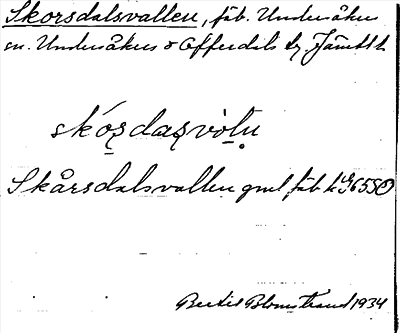 Skorsdalsvallen, fäb. Undersåkers
sn. Undersåkers & Offerdals tg. Jämtl. l.
skórsdasvòlu
Skårsdalsvallen gml fäb
Bertil Blomstrand 1934